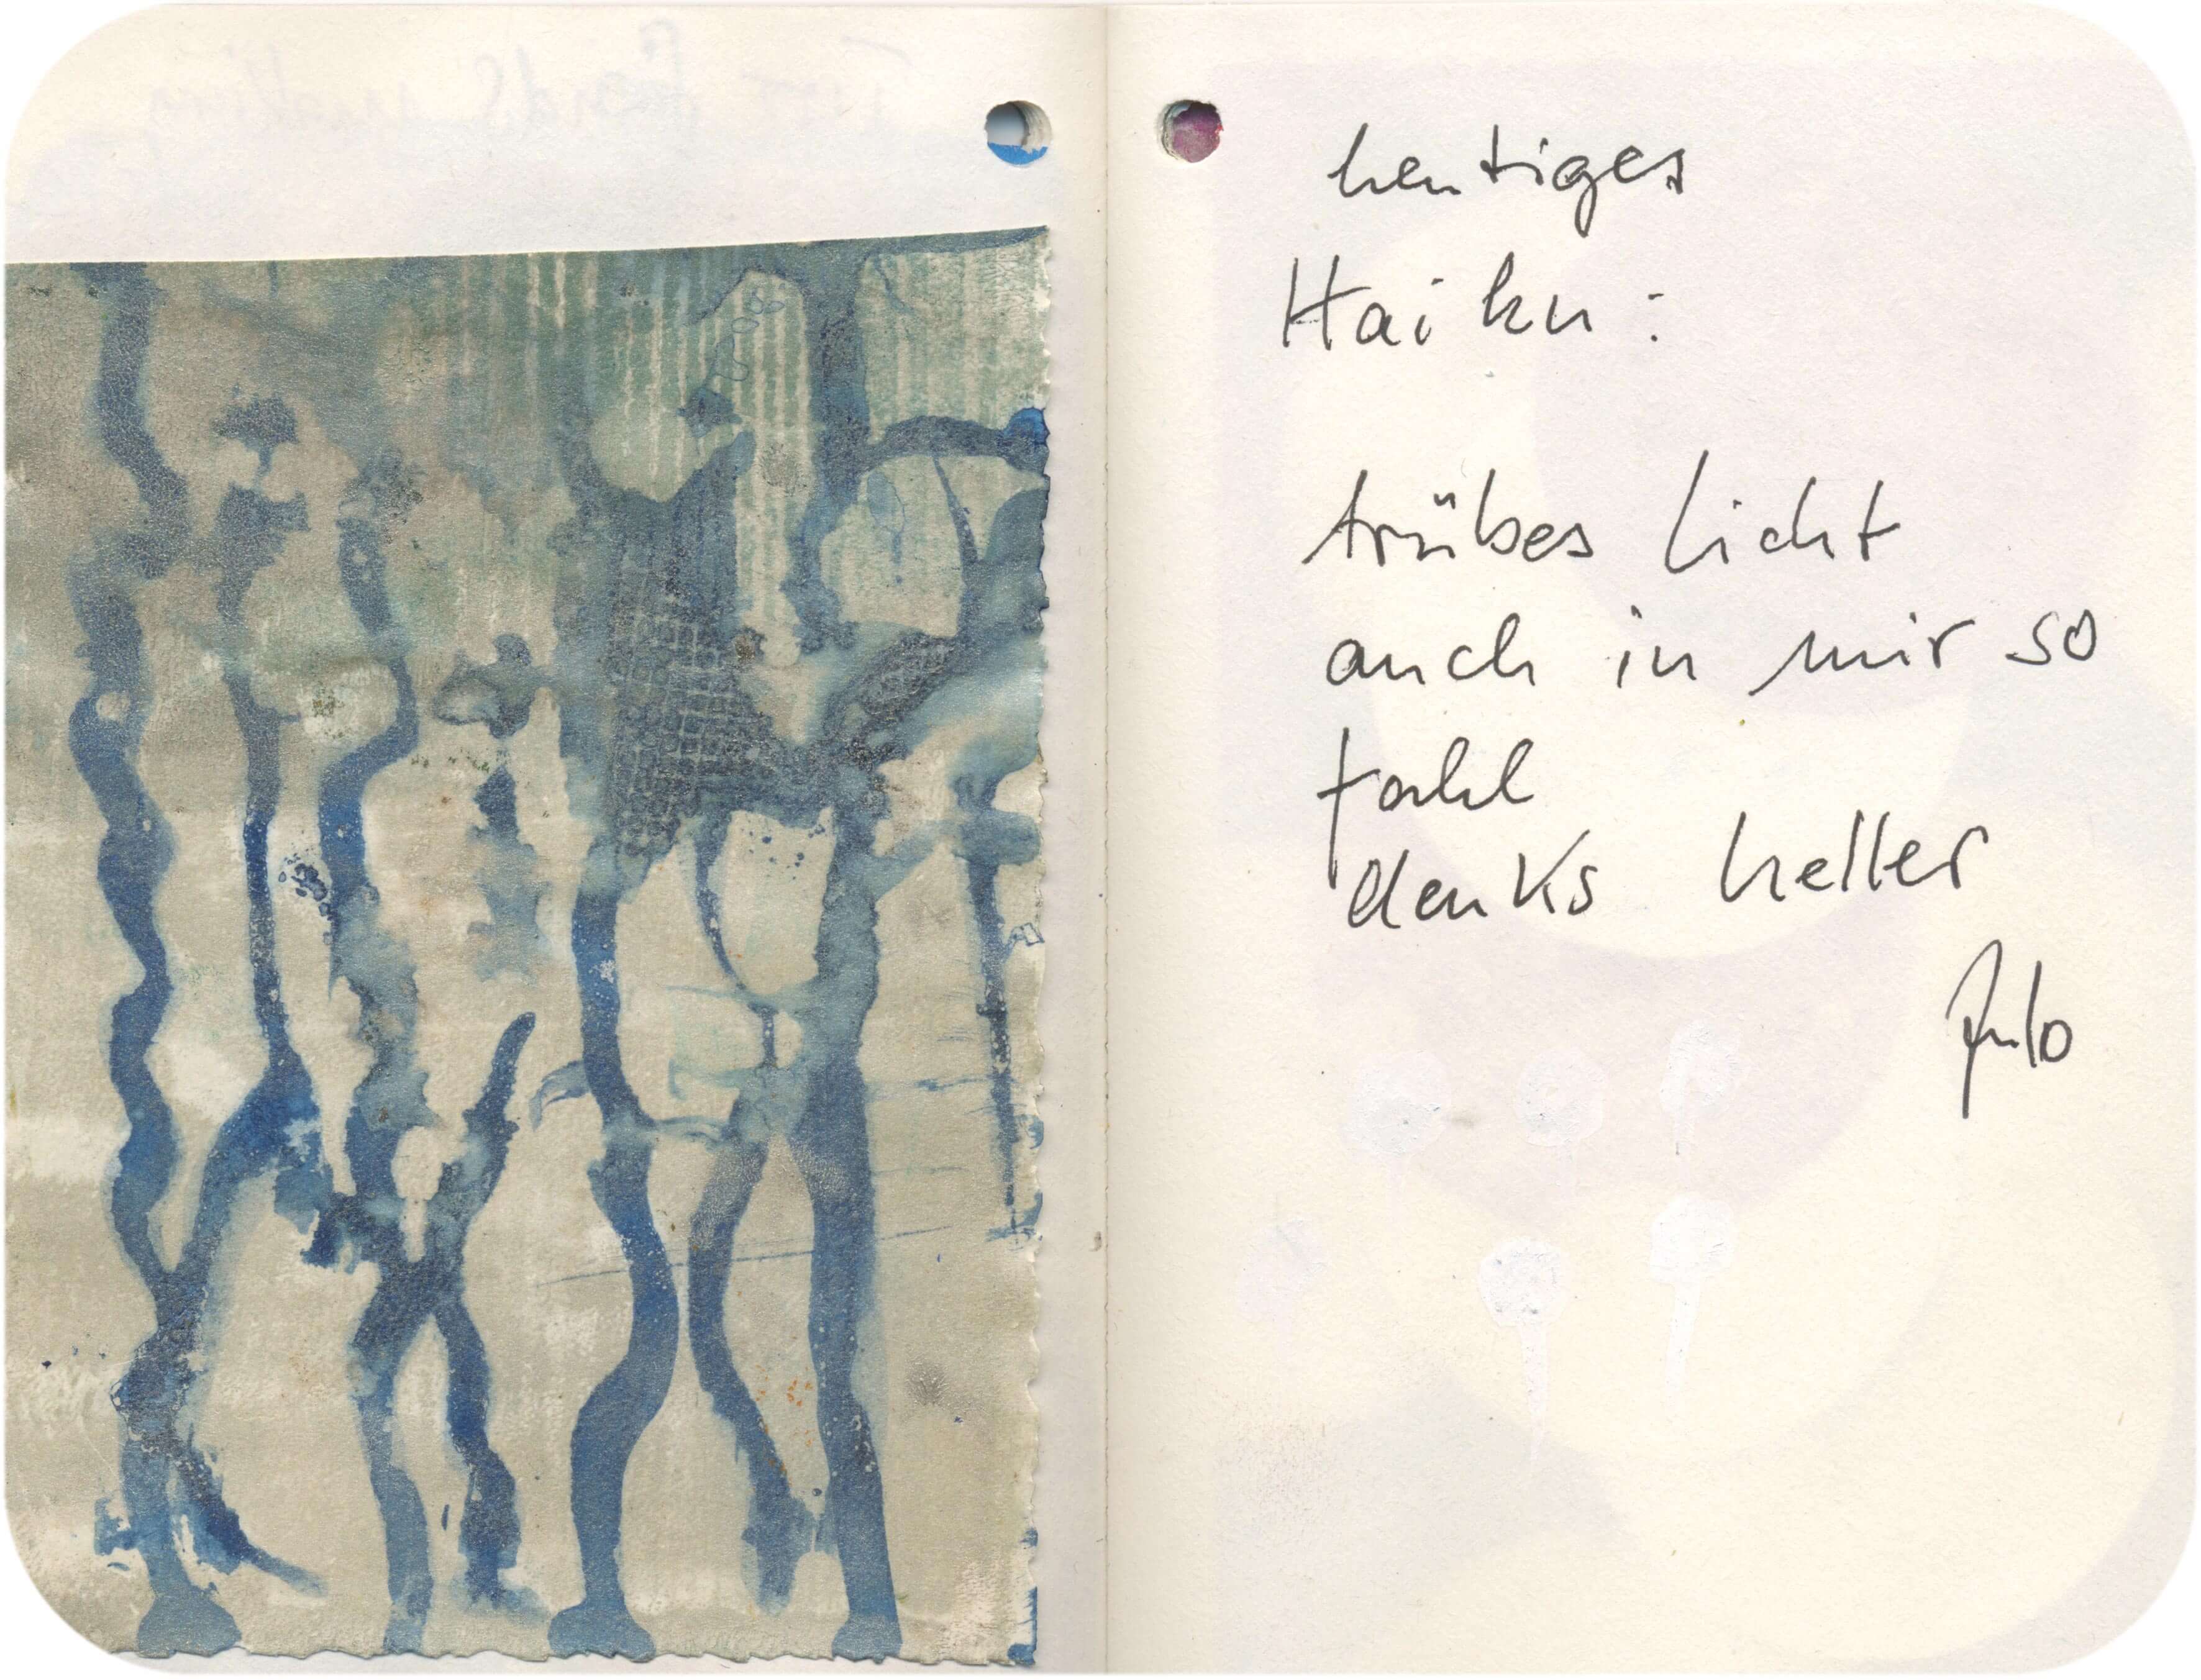 heutiges
Haiku:
trübes licht
auch in mir so
fahl
denks heller